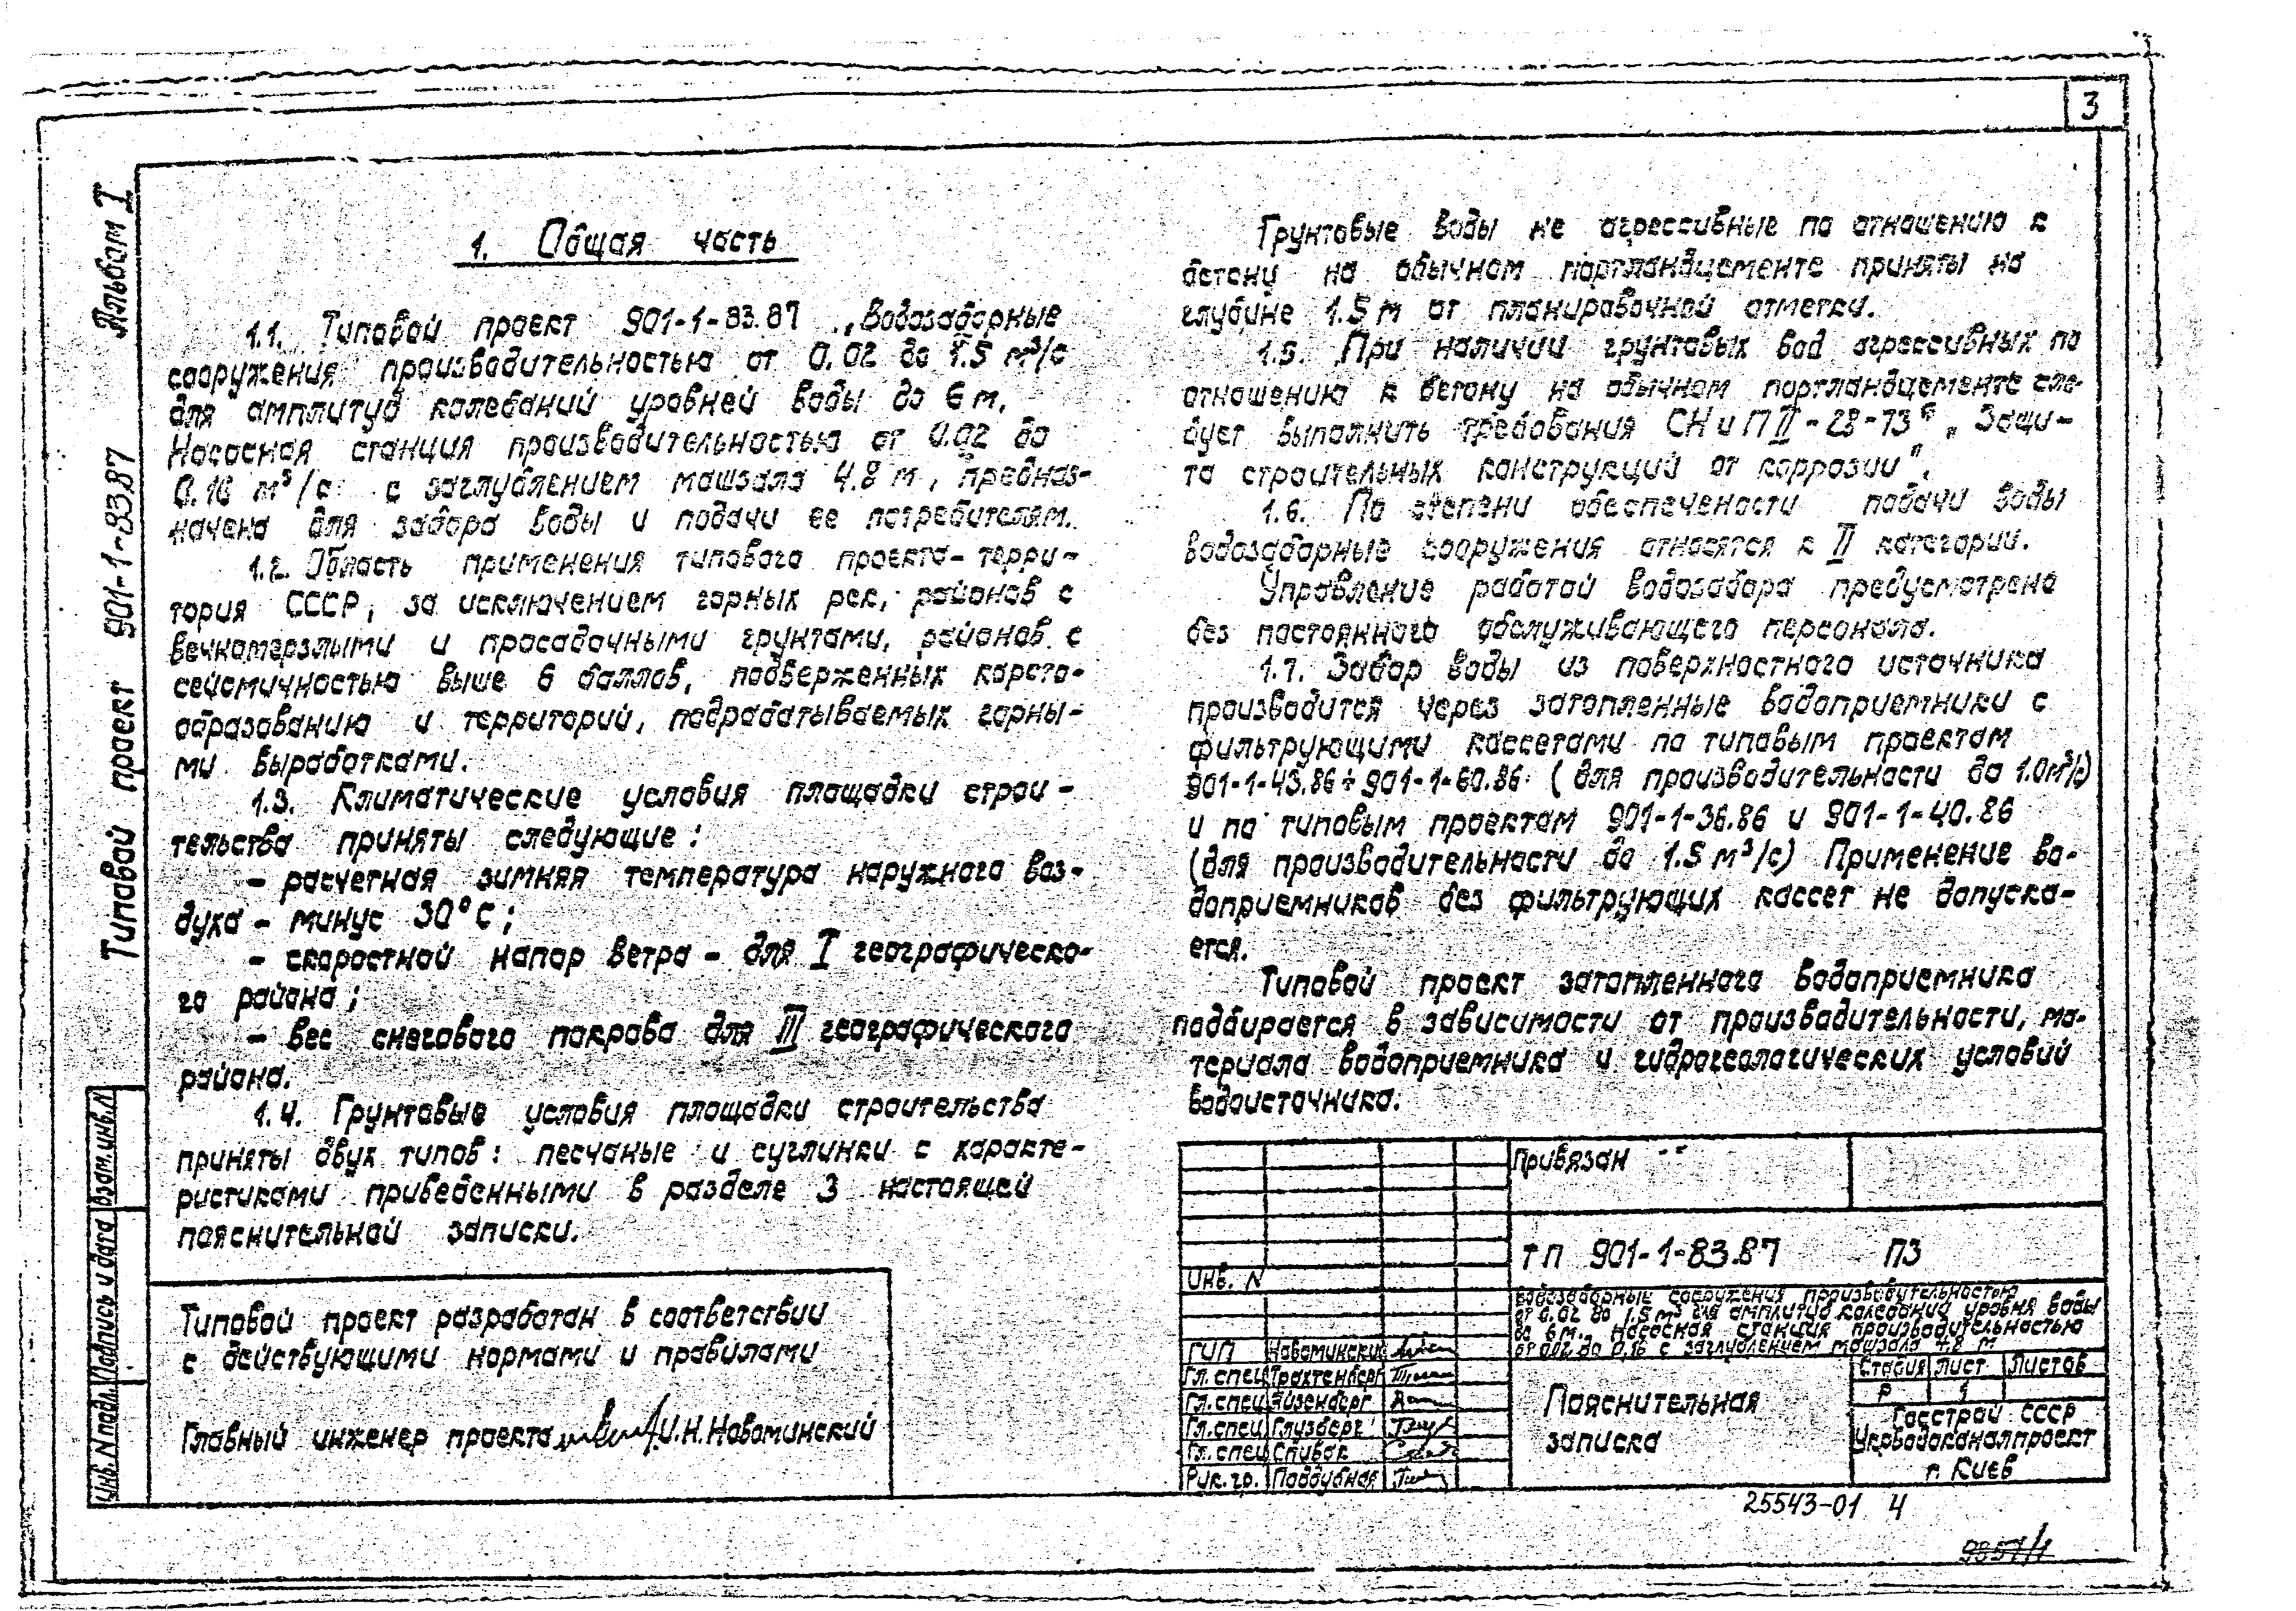 3
Альбом I
Типовой проект 901-1-83.87
1. Общая часть
1.1. Типовой проект 901-1-83.87 „Водозаборные
сооружения производительностью от 0.02 до 1.5 м³/с
для амплитуд колебаний уровней воды до 6 м.
Насосная станция производительностью от 0.02 до
0.16 м³/с с заглублением машзала 4.8 м, предназ-
начена для забора воды и подачи ее потребителям.
1.2. Область применения типового проекта - терри-
тория СССР, за исключением горных рек, районов с
вечномерзлыми и просадочными грунтами, районов с
сейсмичностью выше 6 баллов, подверженных карсто-
образованию и территорий, подрабатываемых горны-
ми выработками.
1.3. Климатические условия площадки строи-
тельства приняты следующие:
- расчетная зимняя температура наружного воз-
духа - минус 30°С;
- скоростной напор ветра - для I географическо-
го района;
- вес снегового покрова для III географического
района.
1.4. Грунтовые условия площадки строительства
приняты двух типов: песчаные и суглинки с характе-
ристиками приведенными в разделе 3 настоящей
пояснительной записки.
Типовой проект разработан в соответствии
с действующими нормами и правилами
Главный инженер проекта И.Н.Новоминский
Грунтовые воды не агрессивные по отношению к
бетону на обычном портландцементе приняты на
глубине 1.5 м от планировочной отметки.
1.5. При наличии грунтовых вод агрессивных по
отношению к бетону на обычном портландцементе сле-
дует выполнить требования СНиП II-28-73 „Защи-
та строительных конструкций от коррозии".
1.6. По степени обеспечености подачи воды
водозаборные сооружения относятся к II категории.
Управление работой водозабора предусмотрено
без постоянного обслуживающего персонала.
1.7. Забор воды из поверхностного источника
производится через затопленные водоприемники с
фильтрующими кассетами по типовым проектам
901-1-43.86÷901-1-60.86 (для производительности до 1.0м³/с)
и по типовым проектам 901-1-36.86 и 901-1-40.86
(для производительности до 1.5 м³/с) Применение во-
доприемников без фильтрующих кассет не допуска-
ется.
Типовой проект затопленного водоприемника
подбирается в зависимости от производительности, ма-
териала водоприемника и гидрогеологических условий
водоисточника.
Привязан
Инв. N
ТП 901-1-83.87 ПЗ
Водозаборные сооружения производительностью
от 0.02 до 1.5 м³ для амплитуд колебаний уровня воды
до 6 м. Насосная станция производительностью
от 0.02 до 0,16 с заглублением машзала 4.8 м
ГИП Новоминский
Гл. спец Трахтенберг
Гл. спец Айзенберг
Гл. спец Глузберг
Гл. спец Спивак
Рук. гр. Поддубная
Пояснительная
записка
Стадия Лист Листов
Р 1
Госстрой СССР
Укрводоканалпроект
г. Киев
Инв. N подл. Подпись и дата Взам. инв. N
25543-01 4
9857/1